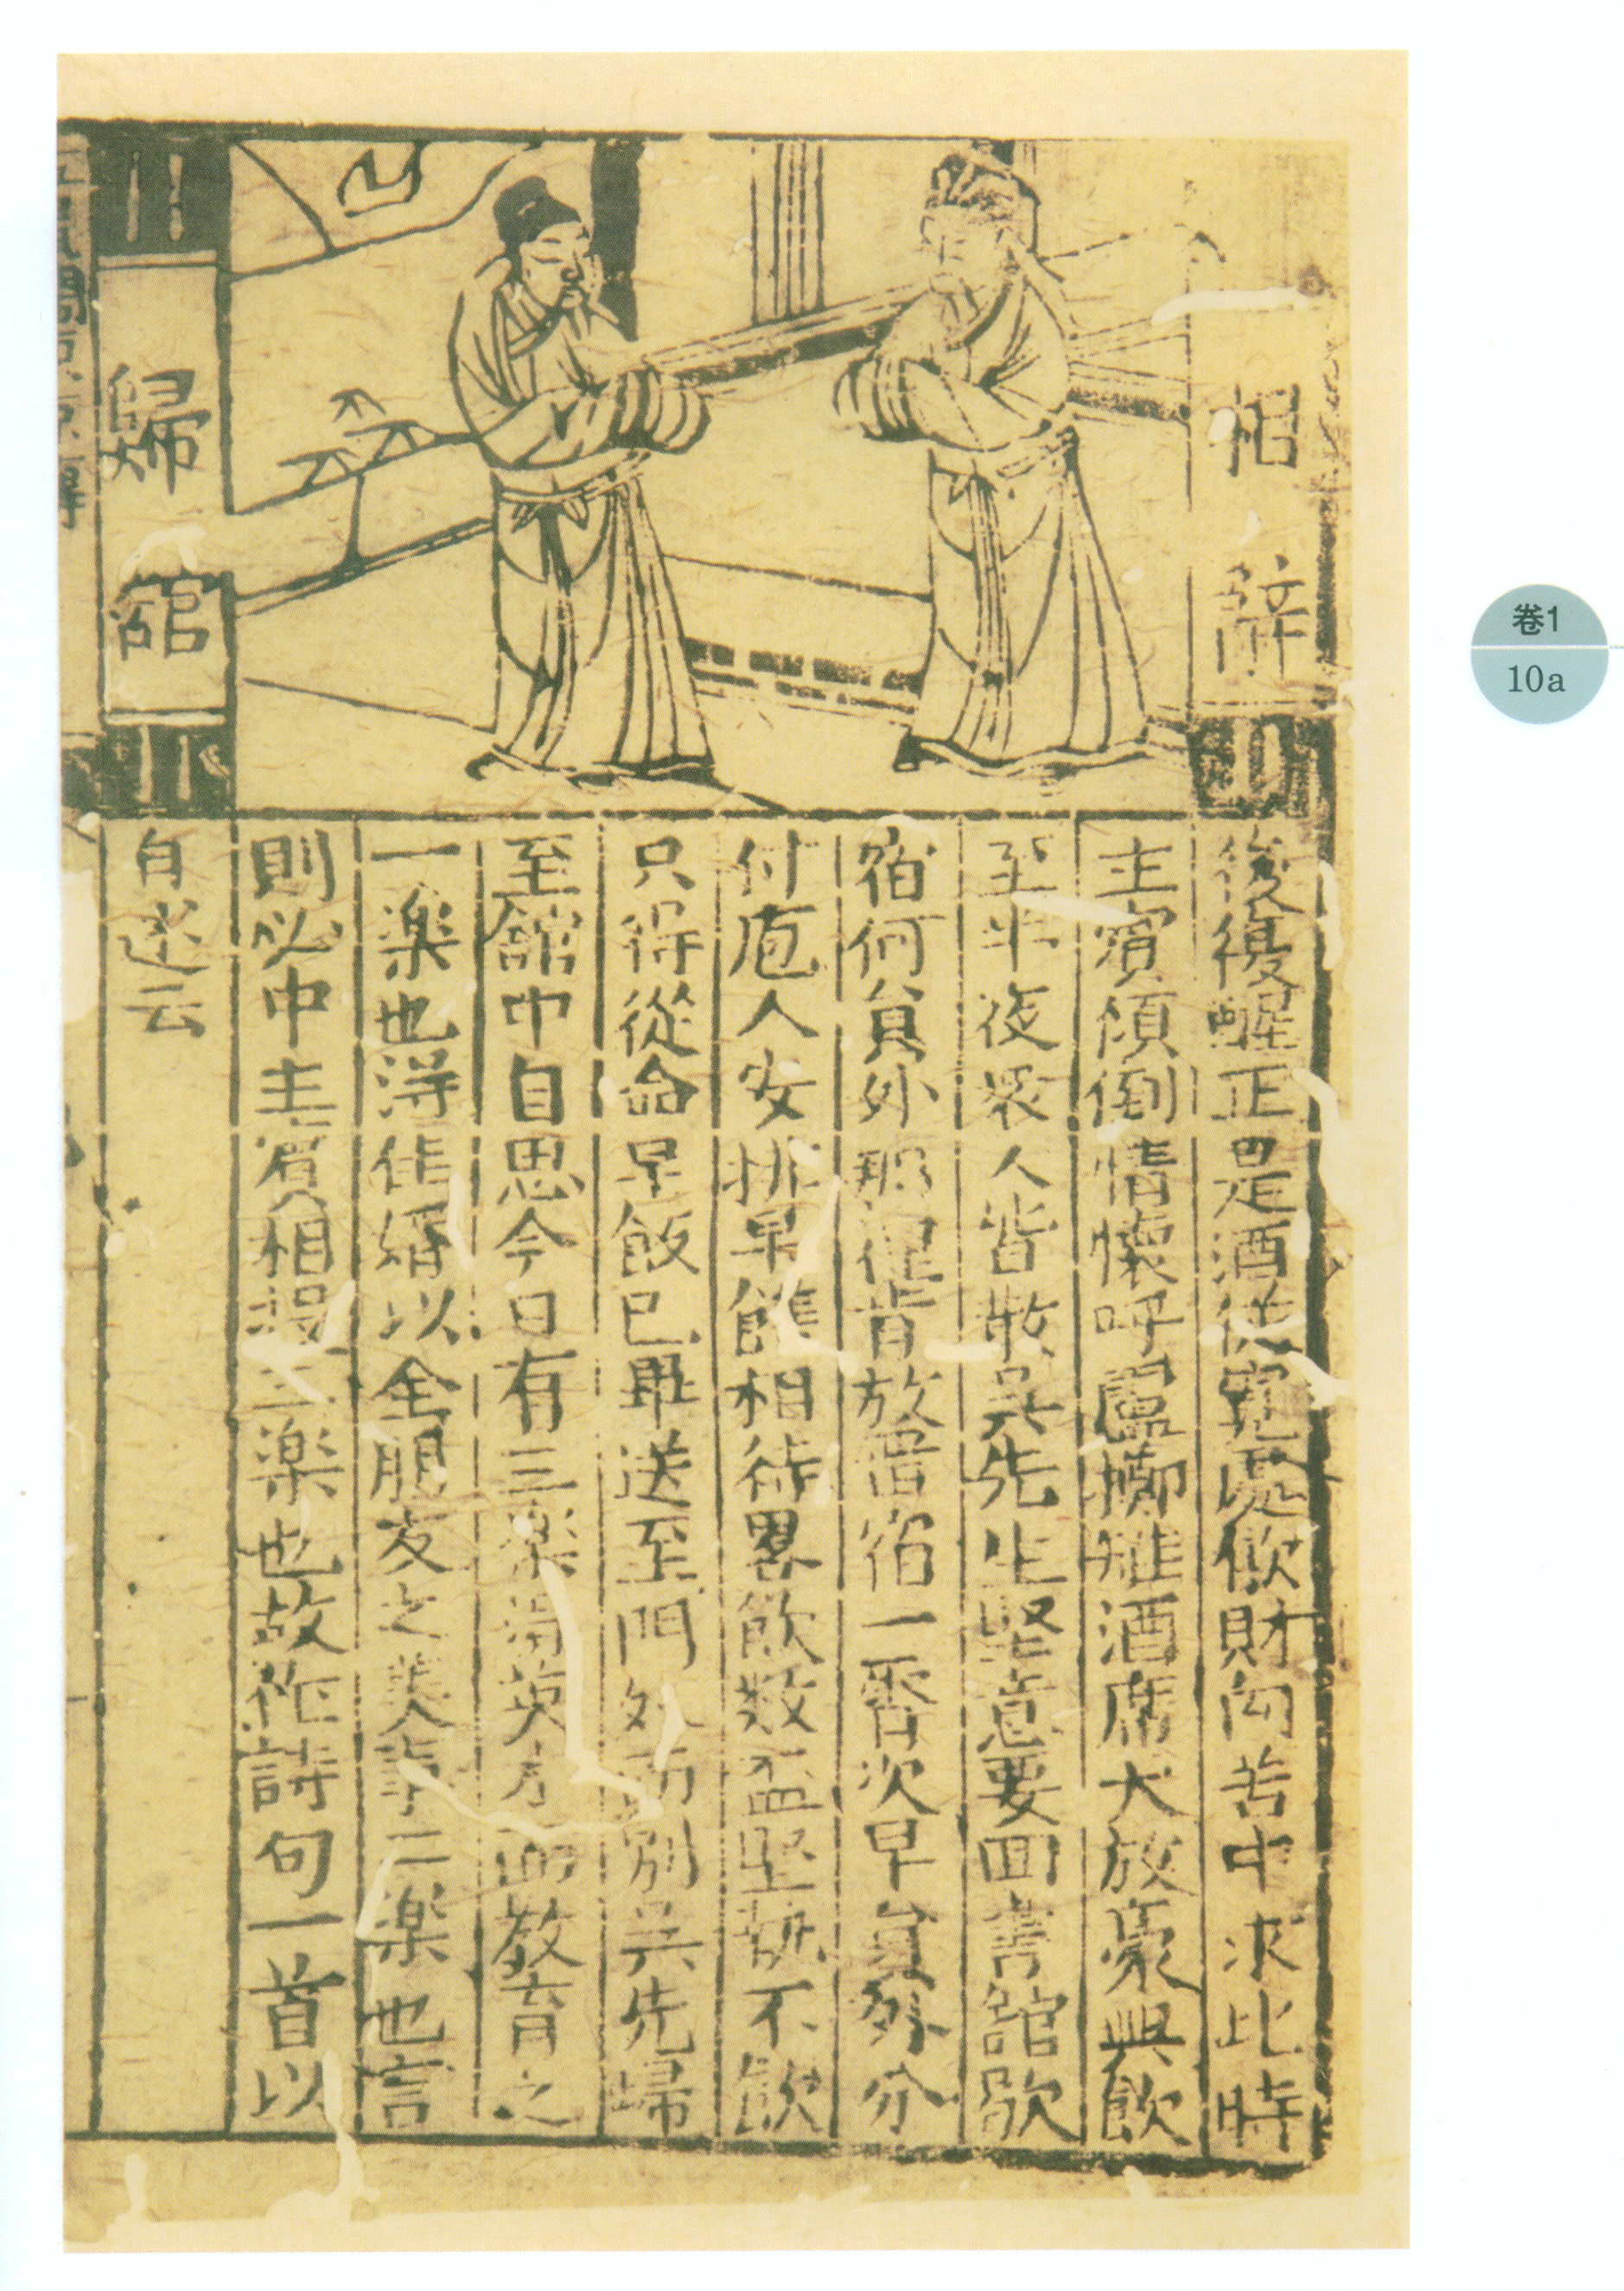 相辭
歸舘
後復醒正是酒從寬處飲財向苦中求此時
主賓傾倒情懷呼盧擲雉酒席大放豪興飲
至半夜衆人皆散吳先生堅意要回書舘歇
宿何員外那里肯放留宿一宵次早員外分
付庖人安排早饌相待畧飲数盃堅執不飲
只得從命早飯已畢送至門外而別吳先歸
至舘中自思今日有三楽得英才而教育之
一楽也得作婚以全朋友之美事二楽也言
則以中主賓相得三楽也故作詩句一首以
自述云
卷1
10a